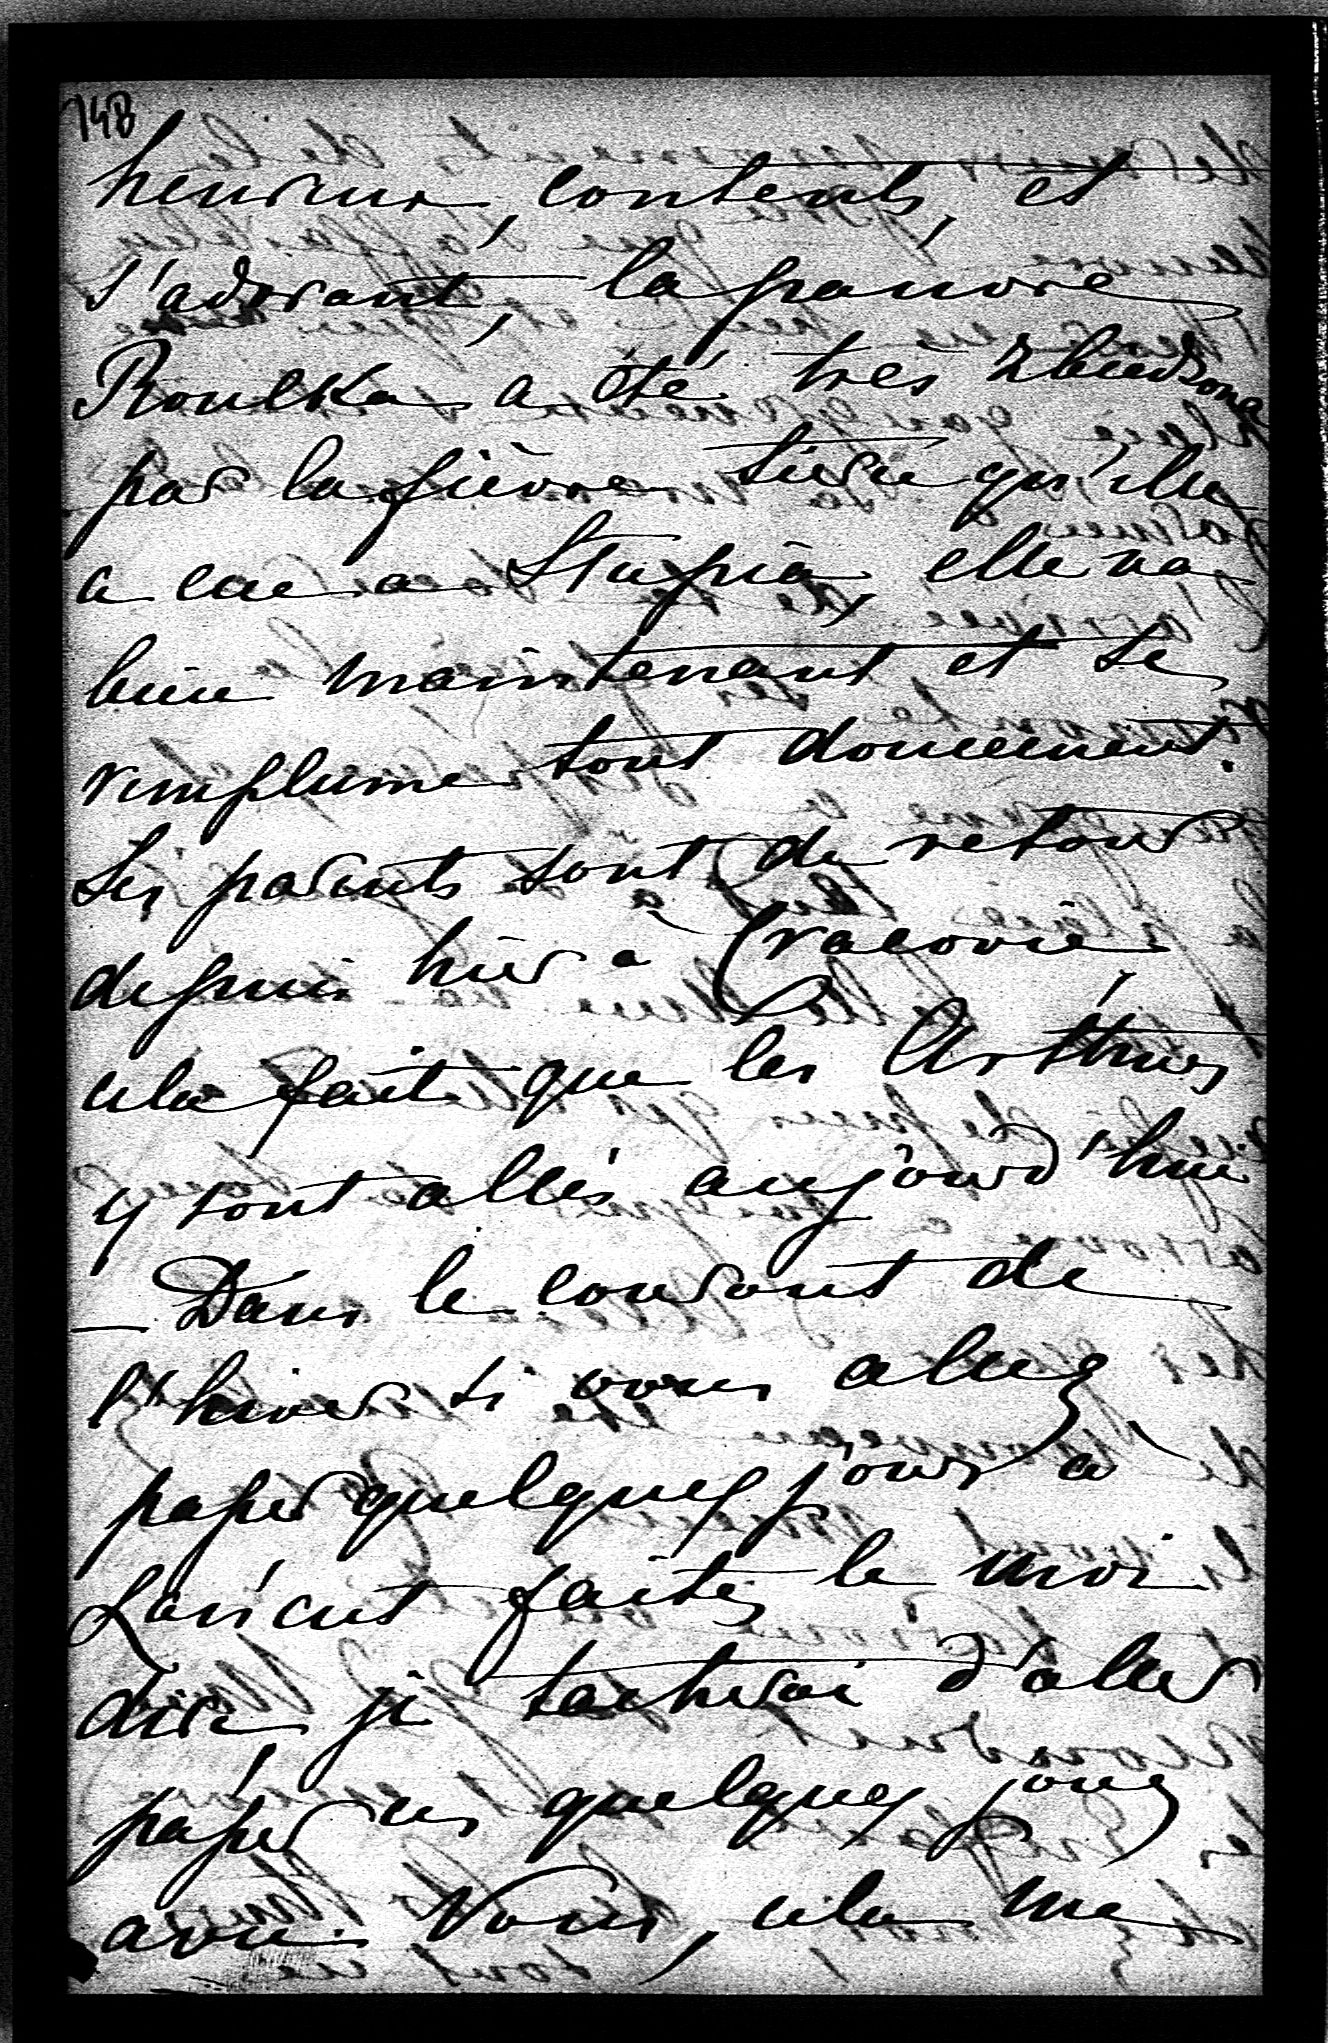 148
heureux, contents, et
s'adorant, la pauvre
Roulka a été très zbiedzona
par la fièvre tierce qu'elle
a eue a Stupia, elle va
bien maintenant et se
remplume tout doucement.
Les parents sont de retour
depuis hier à Cracovie,
cela fait que les Arthurs
y sont allés aujourd'hui
— Dans le courant de
l'hiver si vous allez
passer quelques jours à
Łańcut faites le moi
dire je tacherai d'aller
passer ces quelques jours
avec Vous, cela me